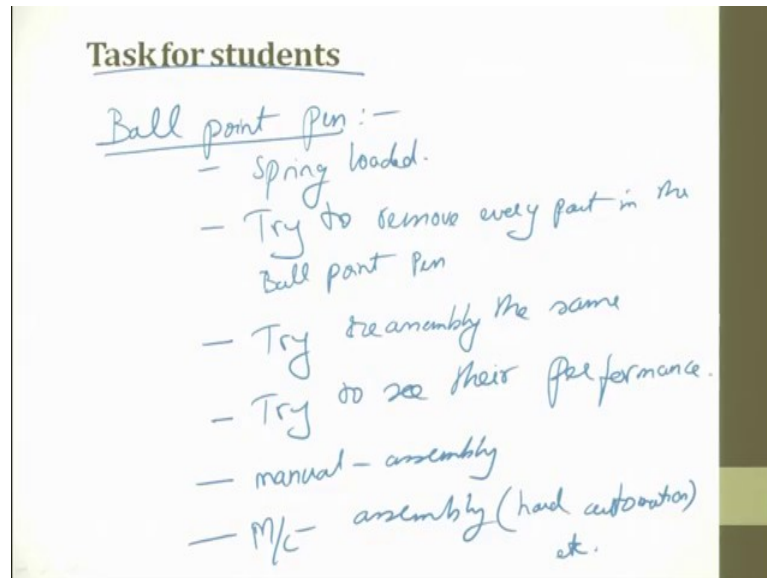 Task for students
Ball point pen :-
- Spring loaded.
- Try to remove every part in the
Ball point Pen
- Try reassembly the same
- Try to see their performance.
- manual - assembly
- M/c - assembly (hard automation)
etc.